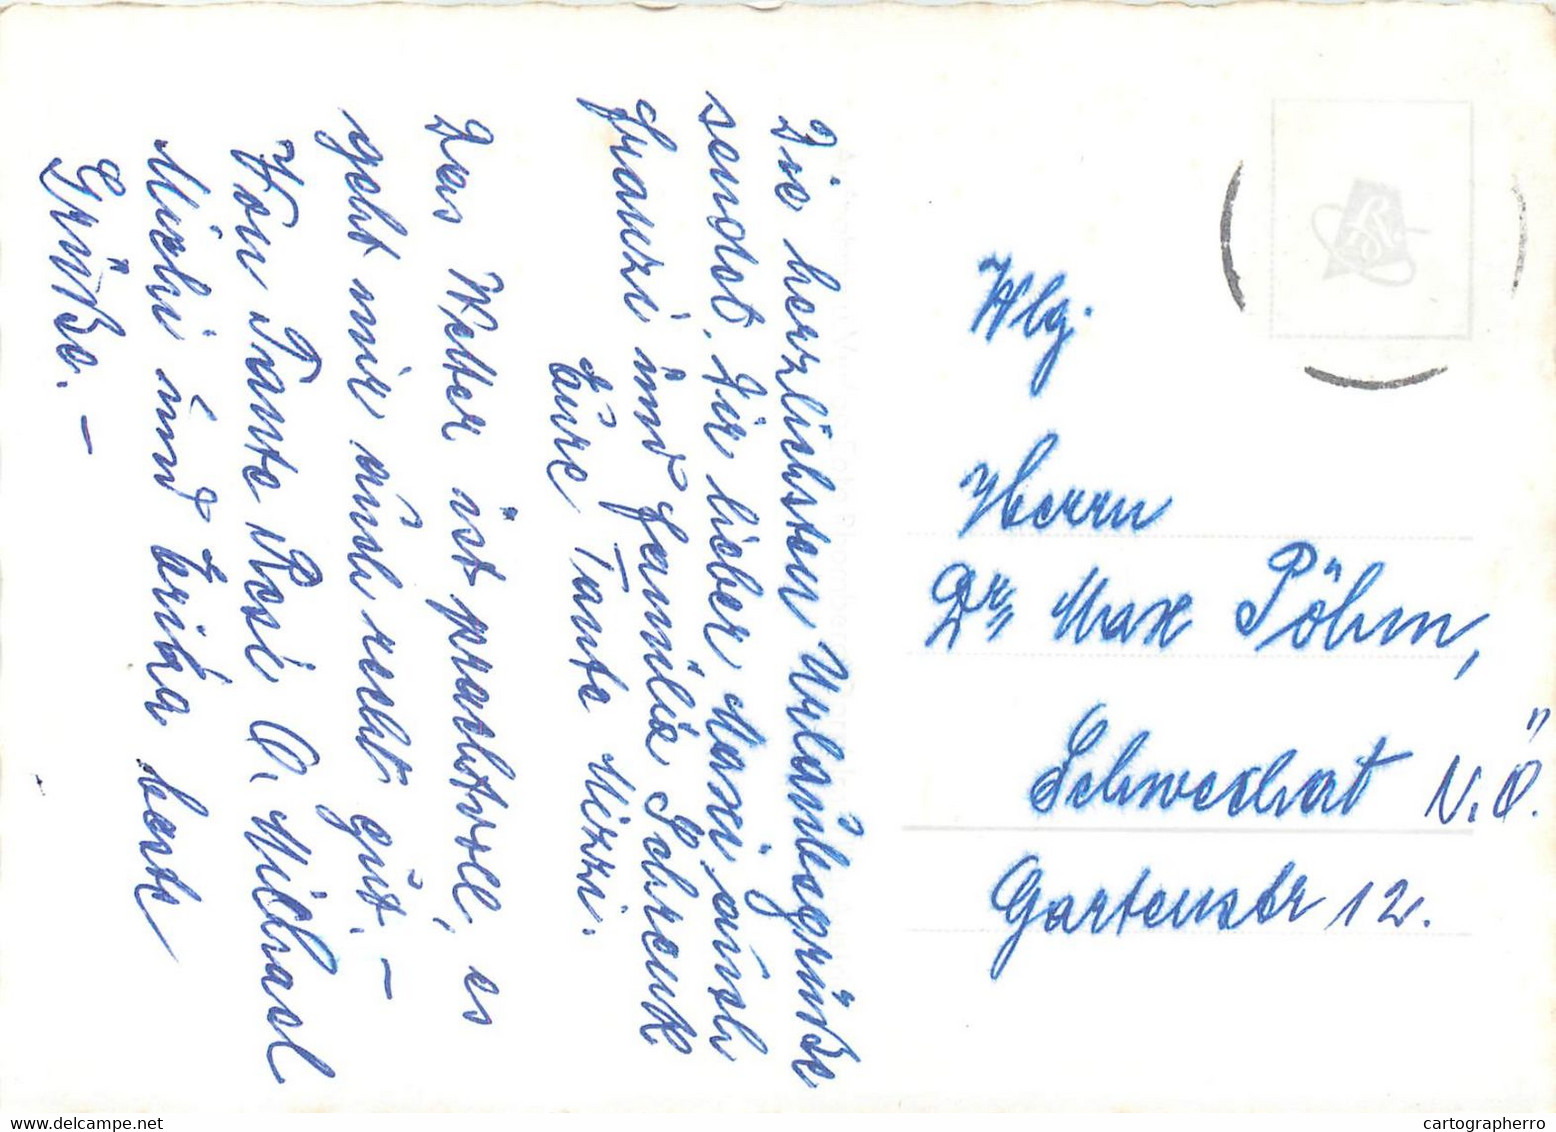 Die herzlichsten Urlaubsgrüße
sendet Dir lieber Maxi, auch
Franzi und Familie Schrenk
Eure Tante Mizzi.
Das Wetter ist prachtvoll, es
geht mir auch recht gut. –
Von Tante Resi O. Michael
Michi und Erika beste
Grüße. –
Wlg.
Herrn
Dr. Max Pöhm,
Schwechat N.Ö.
Gartenstr 12.
cartographerro